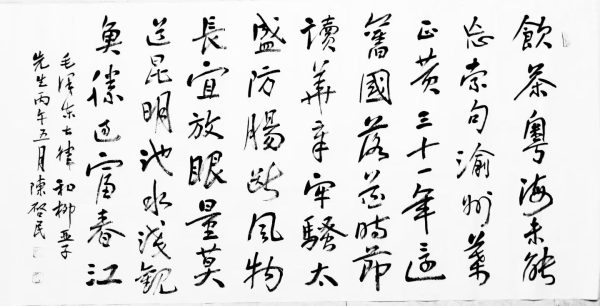 飲茶粵海未能
忘索句渝州葉
正黃三十一年還
舊國落花時節
讀華章牢騷太
盛防腸斷風物
長宜放眼量莫
道昆明池水淺觀
魚勝過富春江
毛泽东七律和柳亞子
先生丙午五月陳啓民